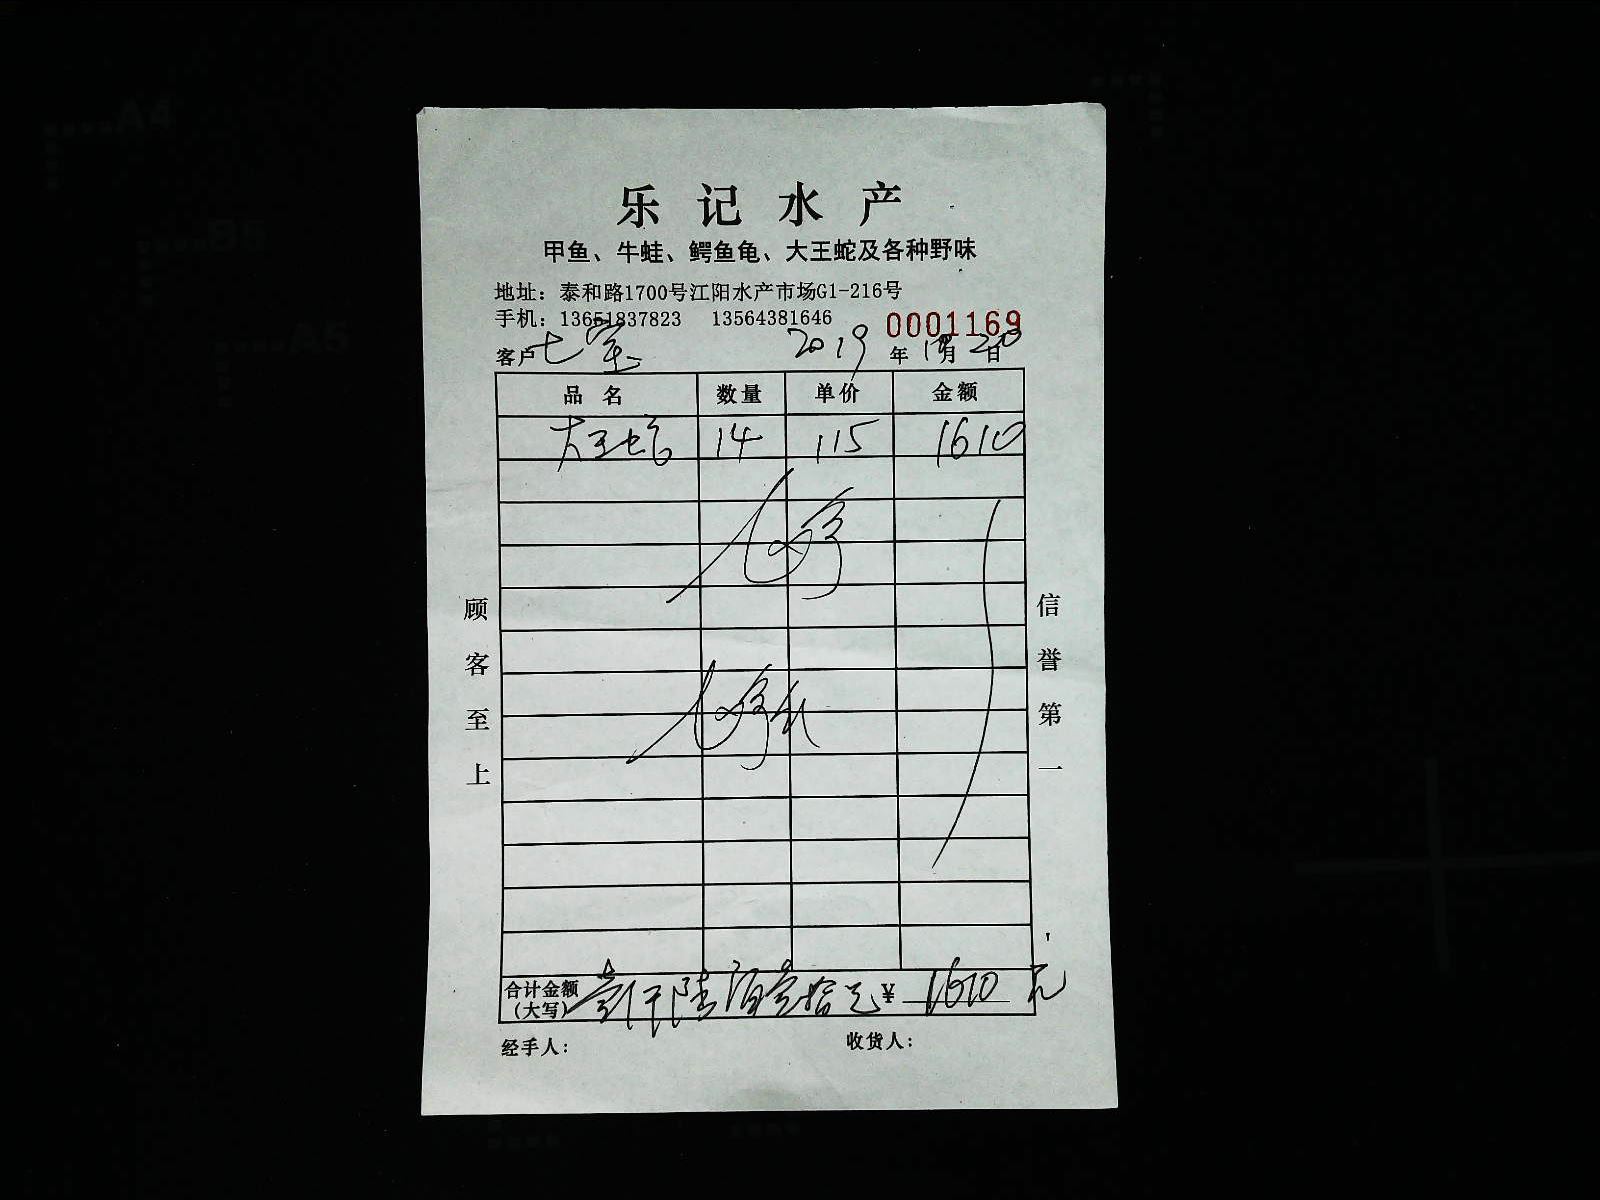 乐记水产
甲鱼、牛蛙、鳄鱼龟、大王蛇及各种野味
地址：泰和路1700号江阳水产市场G1-216号
手机：13651837823 13564381646
0001169
客户 七宝 2019年 月20日
品名 数量 单价 金额
大王蛇 14 115 1610
顾客至上
信誉第一
合计金额（大写）壹仟陆佰壹拾元 ¥1610元
经手人： 收货人：